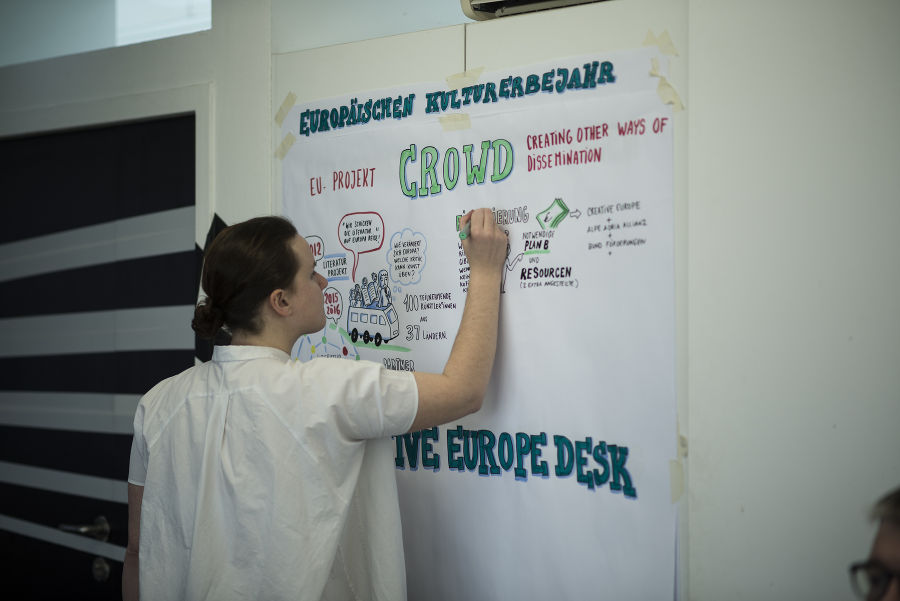 EUROPÄISCHEN KULTURERBEJAHR
EU- PROJEKT
CROWD
CREATING OTHER WAYS OF
DISSEMINATION
"WIR SCHICKEN
DIE LITERATUR
AUF EUROPA REISE"
WIE VERÄNDERT
SICH EUROPA?
WELCHE KRITIK
KANN KUNST
ÜBEN?
LITERATUR
PROJEKT
2015
2016
100 TEILNEHMENDE
KÜNSTLER*INNEN
AUS
37 LÄNDERN.
PARTNER
NOTWENDIGE
PLAN B
UND
RESOURCEN
(2 EXTRA ANGESTELLTE)
CREATIVE EUROPE
+
ALPE ADRIA ALLIANZ
+
BUND FÖRDERUNGEN
+
IVE EUROPE DESK